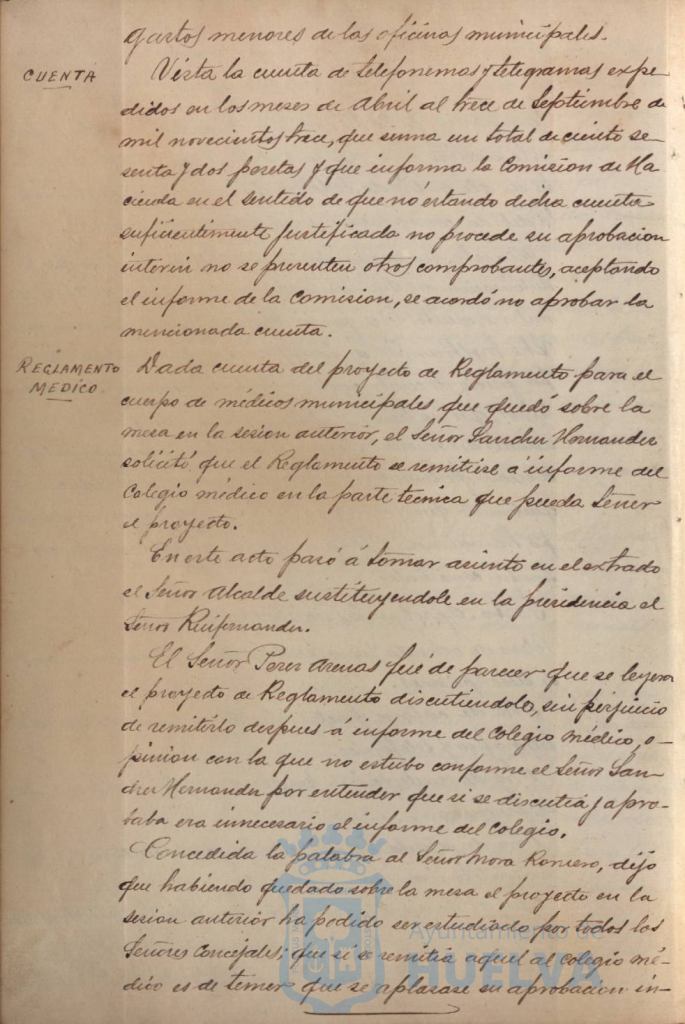 gastos menores de las oficinas municipales.
CUENTA
Vista la cuenta de telefonemas y telegramas expe-
didos en los meses de Abril al trece de Septiembre de
mil novecientos trece, que suma un total de ciento se-
senta y dos pesetas y que informa la Comision de Ha
cienda en el sentido de que nó estando dicha cuenta
suficientemente justificada no procede su aprobacion
interin no se presenten otros comprobantes, aceptando
el informe de la Comision, se acordó no aprobar la
mencionada cuenta.
REGLAMENTO
MEDICO
Dada cuenta del proyecto de Reglamento para el
cuerpo de médicos municipales que quedó sobre la
mesa en la sesion anterior, el Señor Sanchez Hernandez
solicitó que el Reglamento se remitiese á informe del
Colegio médico en la parte técnica que pueda tener
el proyecto.
En este acto pasó á tomar asiento en el estrado
el Señor Alcalde sustituyendole en la presidencia el
Señor Ruifernandez.
El Señor Perez Arenas fué de parecer que se leyera
el proyecto de Reglamento discutiendolo, sin perjuicio
de remitirlo despues á informe del Colegio médico, o-
pinion con la que no estubo conforme el Señor San-
chez Hernandez por entender que si se discutia y apro-
baba era innecesario el informe del Colegio.
Concedida la palabra al Señor Mora Romero, dijo
que habiendo quedado sobre la mesa el proyecto en la
sesion anterior ha podido ser estudiado por todos los
Señores Concejales; que si se remitia aquel al Colegio mé-
dico es de temer que se aplazase su aprobacion in-
Ayuntamiento de
HUELVA